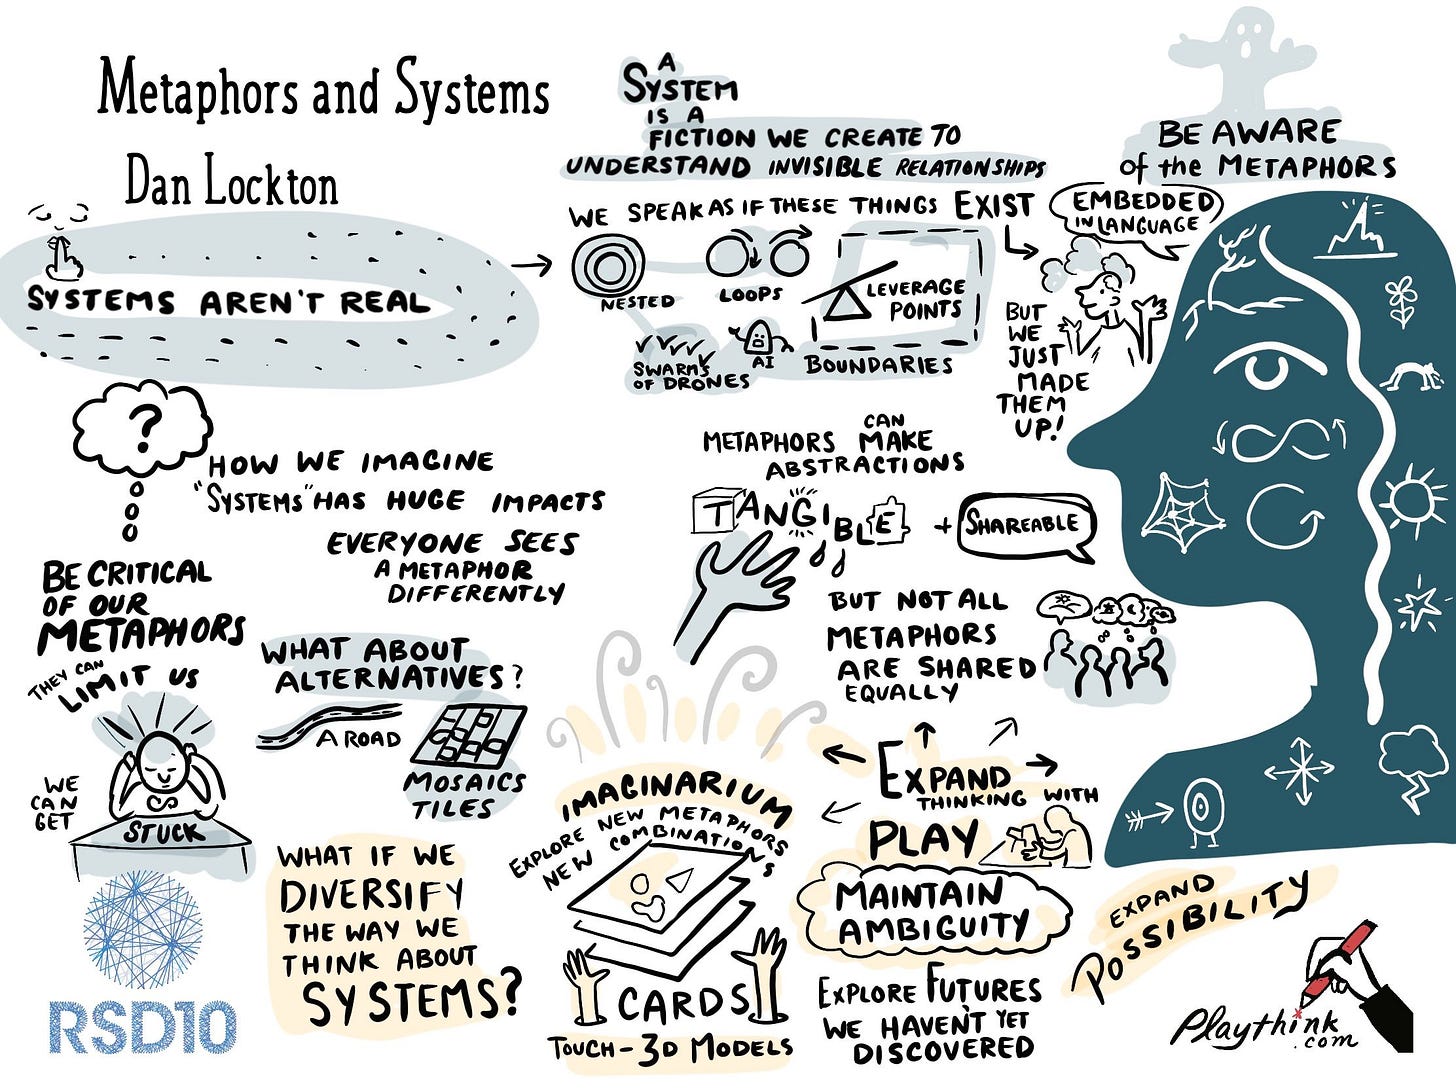 Metaphors and Systems
Dan Lockton
SYSTEMS AREN'T REAL
A
SYSTEM
IS A
FICTION WE CREATE TO
UNDERSTAND INVISIBLE RELATIONSHIPS
WE SPEAK AS IF THESE THINGS EXIST
NESTED
LOOPS
LEVERAGE
POINTS
SWARMS
OF DRONES
AI
BOUNDARIES
BUT
WE
JUST
MADE
THEM
UP!
BE AWARE
of the METAPHORS
EMBEDDED
IN LANGUAGE
?
HOW WE IMAGINE
"SYSTEMS" HAS HUGE IMPACTS
EVERYONE SEES
A METAPHOR
DIFFERENTLY
METAPHORS CAN MAKE
ABSTRACTIONS
TANGIBLE + SHAREABLE
BUT NOT ALL
METAPHORS
ARE SHARED
EQUALLY
BE CRITICAL
OF OUR
METAPHORS
THEY CAN
LIMIT US
WE
CAN
GET
STUCK
WHAT ABOUT
ALTERNATIVES?
A ROAD
MOSAICS
TILES
WHAT IF WE
DIVERSIFY
THE WAY WE
THINK ABOUT
SYSTEMS?
IMAGINARIUM
EXPLORE NEW METAPHORS
NEW COMBINATIONS
CARDS
TOUCH - 3D MODELS
EXPAND
THINKING WITH
PLAY
MAINTAIN
AMBIGUITY
EXPLORE FUTURES
WE HAVEN'T YET
DISCOVERED
EXPAND
POSSIBILITY
RSD10
Playthink
.com